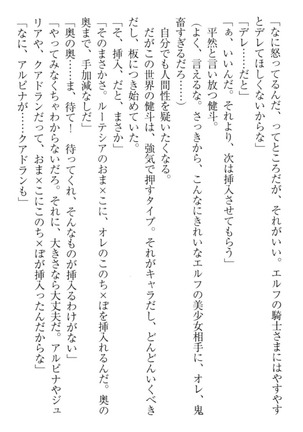 「なに怒ってるんだ、ってところだが、それがいい。エルフの騎士さまにはやすやす
とデレてほしくないからな」
「デレ……だと」
「ぁ、いいんだ。それより、次は挿入させてもらう」
平然と言い放つ健斗。
(よく、言えるな。さっきから、こんなにきれいなエルフの美少女相手に、オレ、鬼
畜すぎるだろ……)
自分でも人間性を疑いたくなる。
だがこの世界の健斗は、強気で押すタイプ。それがキャラだし、どんどんいくべき
だし、板につき始めていた。
「そ、挿入、だと、まさか」
「そのまさかさ。ルーテシアのおま×こに、オレのこのち×ぽを入れるんだ。奥の
奥まで、手加減なしだ」
「奥の奥……ま、待て！　待ってくれ、そんなものが入るわけがない」
「やってみなくちゃわからないだろ。それに、大きさなら大丈夫だ。アルビナやジュ
リアや、クアドランだって、おま×こにこのち×ぽが挿入ったんだからな」
「なに、アルビナが……クアドランも」